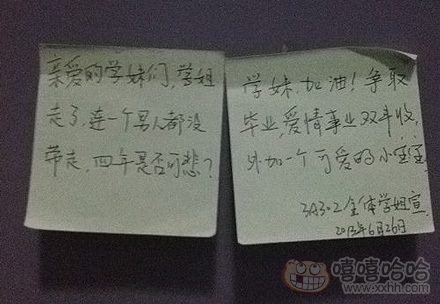 亲爱的学妹们,学姐
走了,连一个男人都没
带走,四年是否可悲?
学妹,加油!争取
毕业,爱情事业双丰收,
外加一个可爱的小宝宝
3A302全体学姐宣
2013年6月26日
嘻嘻哈哈
www.xxhh.com